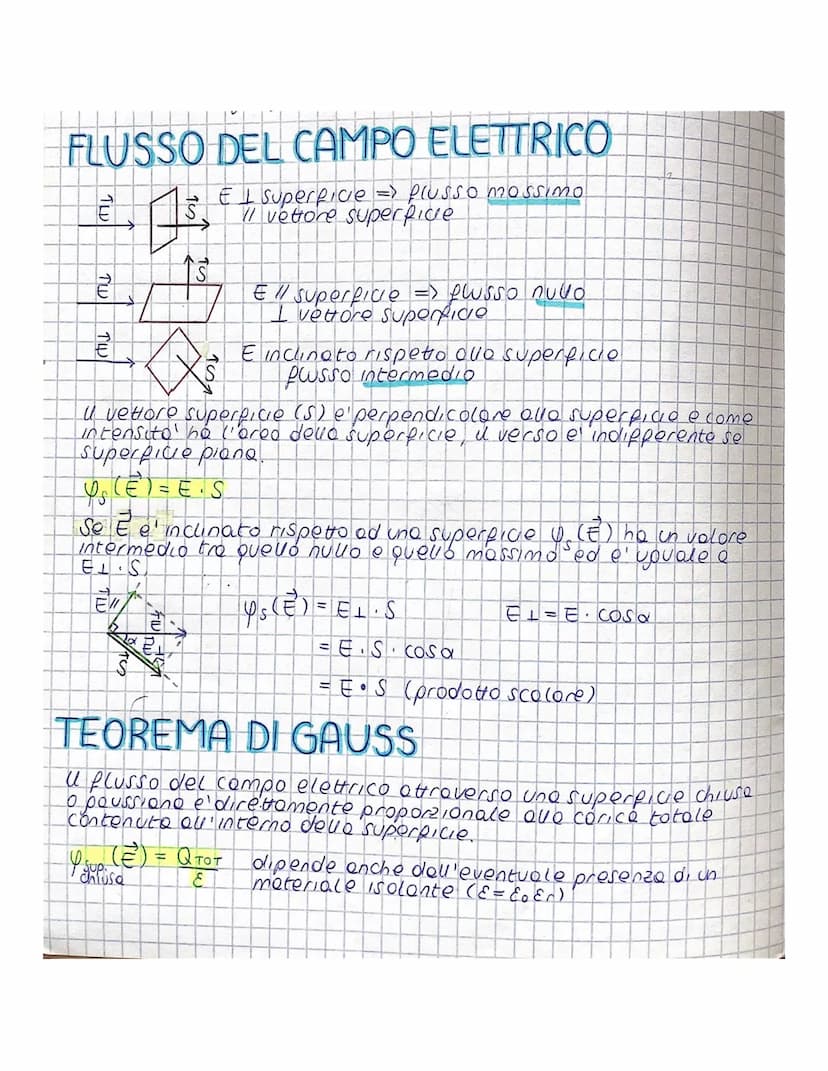 FLUSSO DEL CAMPO ELETTRICO
E⃗ S⃗ E ⊥ superficie => flusso massimo
// vettore superficie
E⃗ S⃗ E // superficie => flusso nullo
⊥ vettore superficie
E⃗ S⃗ E inclinato rispetto alla superficie
flusso intermedio
Il vettore superficie (S) e' perpendicolare alla superficie e come
intensita' ha l'area della superficie, il verso e' indifferente se
superficie piana.
φs (E⃗) = E · S
Se E⃗ e' inclinato rispetto ad una superficie φs (E⃗) ha un valore
intermedio tra quello nullo e quello massimo ed e' uguale a
E⊥ · S.
E⃗// E⃗ α E⃗⊥ S⃗
φs (E⃗) = E⊥ · S E⊥ = E · cosα
= E · S · cosα
= E • S (prodotto scalare)
TEOREMA DI GAUSS
Il flusso del campo elettrico attraverso una superficie chiusa
o gaussiana e' direttamente proporzionale alla carica totale
contenuta all'interno della superficie.
φ sup. chiusa (E⃗) = QTOT / ε dipende anche dall'eventuale presenza di un
materiale isolante (ε = ε₀εr)